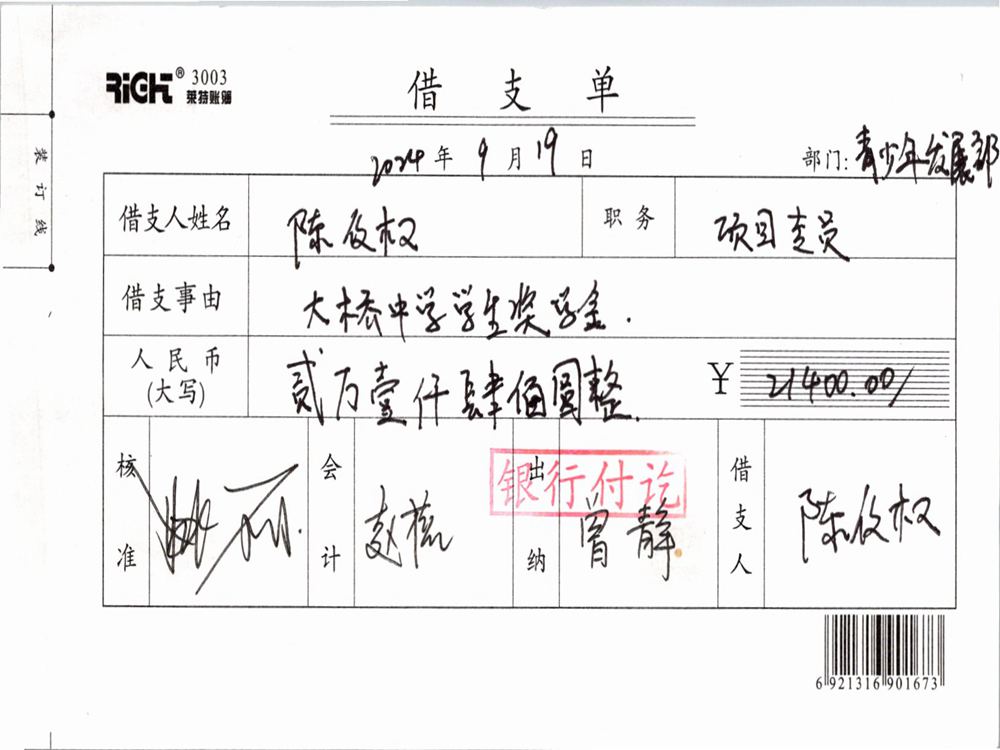 RiGHT® 3003
莱特账簿
借支单
2024年9月19日 部门:青少年发展部
装订线
借支人姓名 陈俊权 职务 项目专员
借支事由 大桥中学学生奖学金.
人民币(大写) 贰万壹仟肆佰圆整. ¥ 21400.00/
核准 会计 赵蕊 出纳 曾静 借支人 陈俊权
银行付讫
6 921316 901673